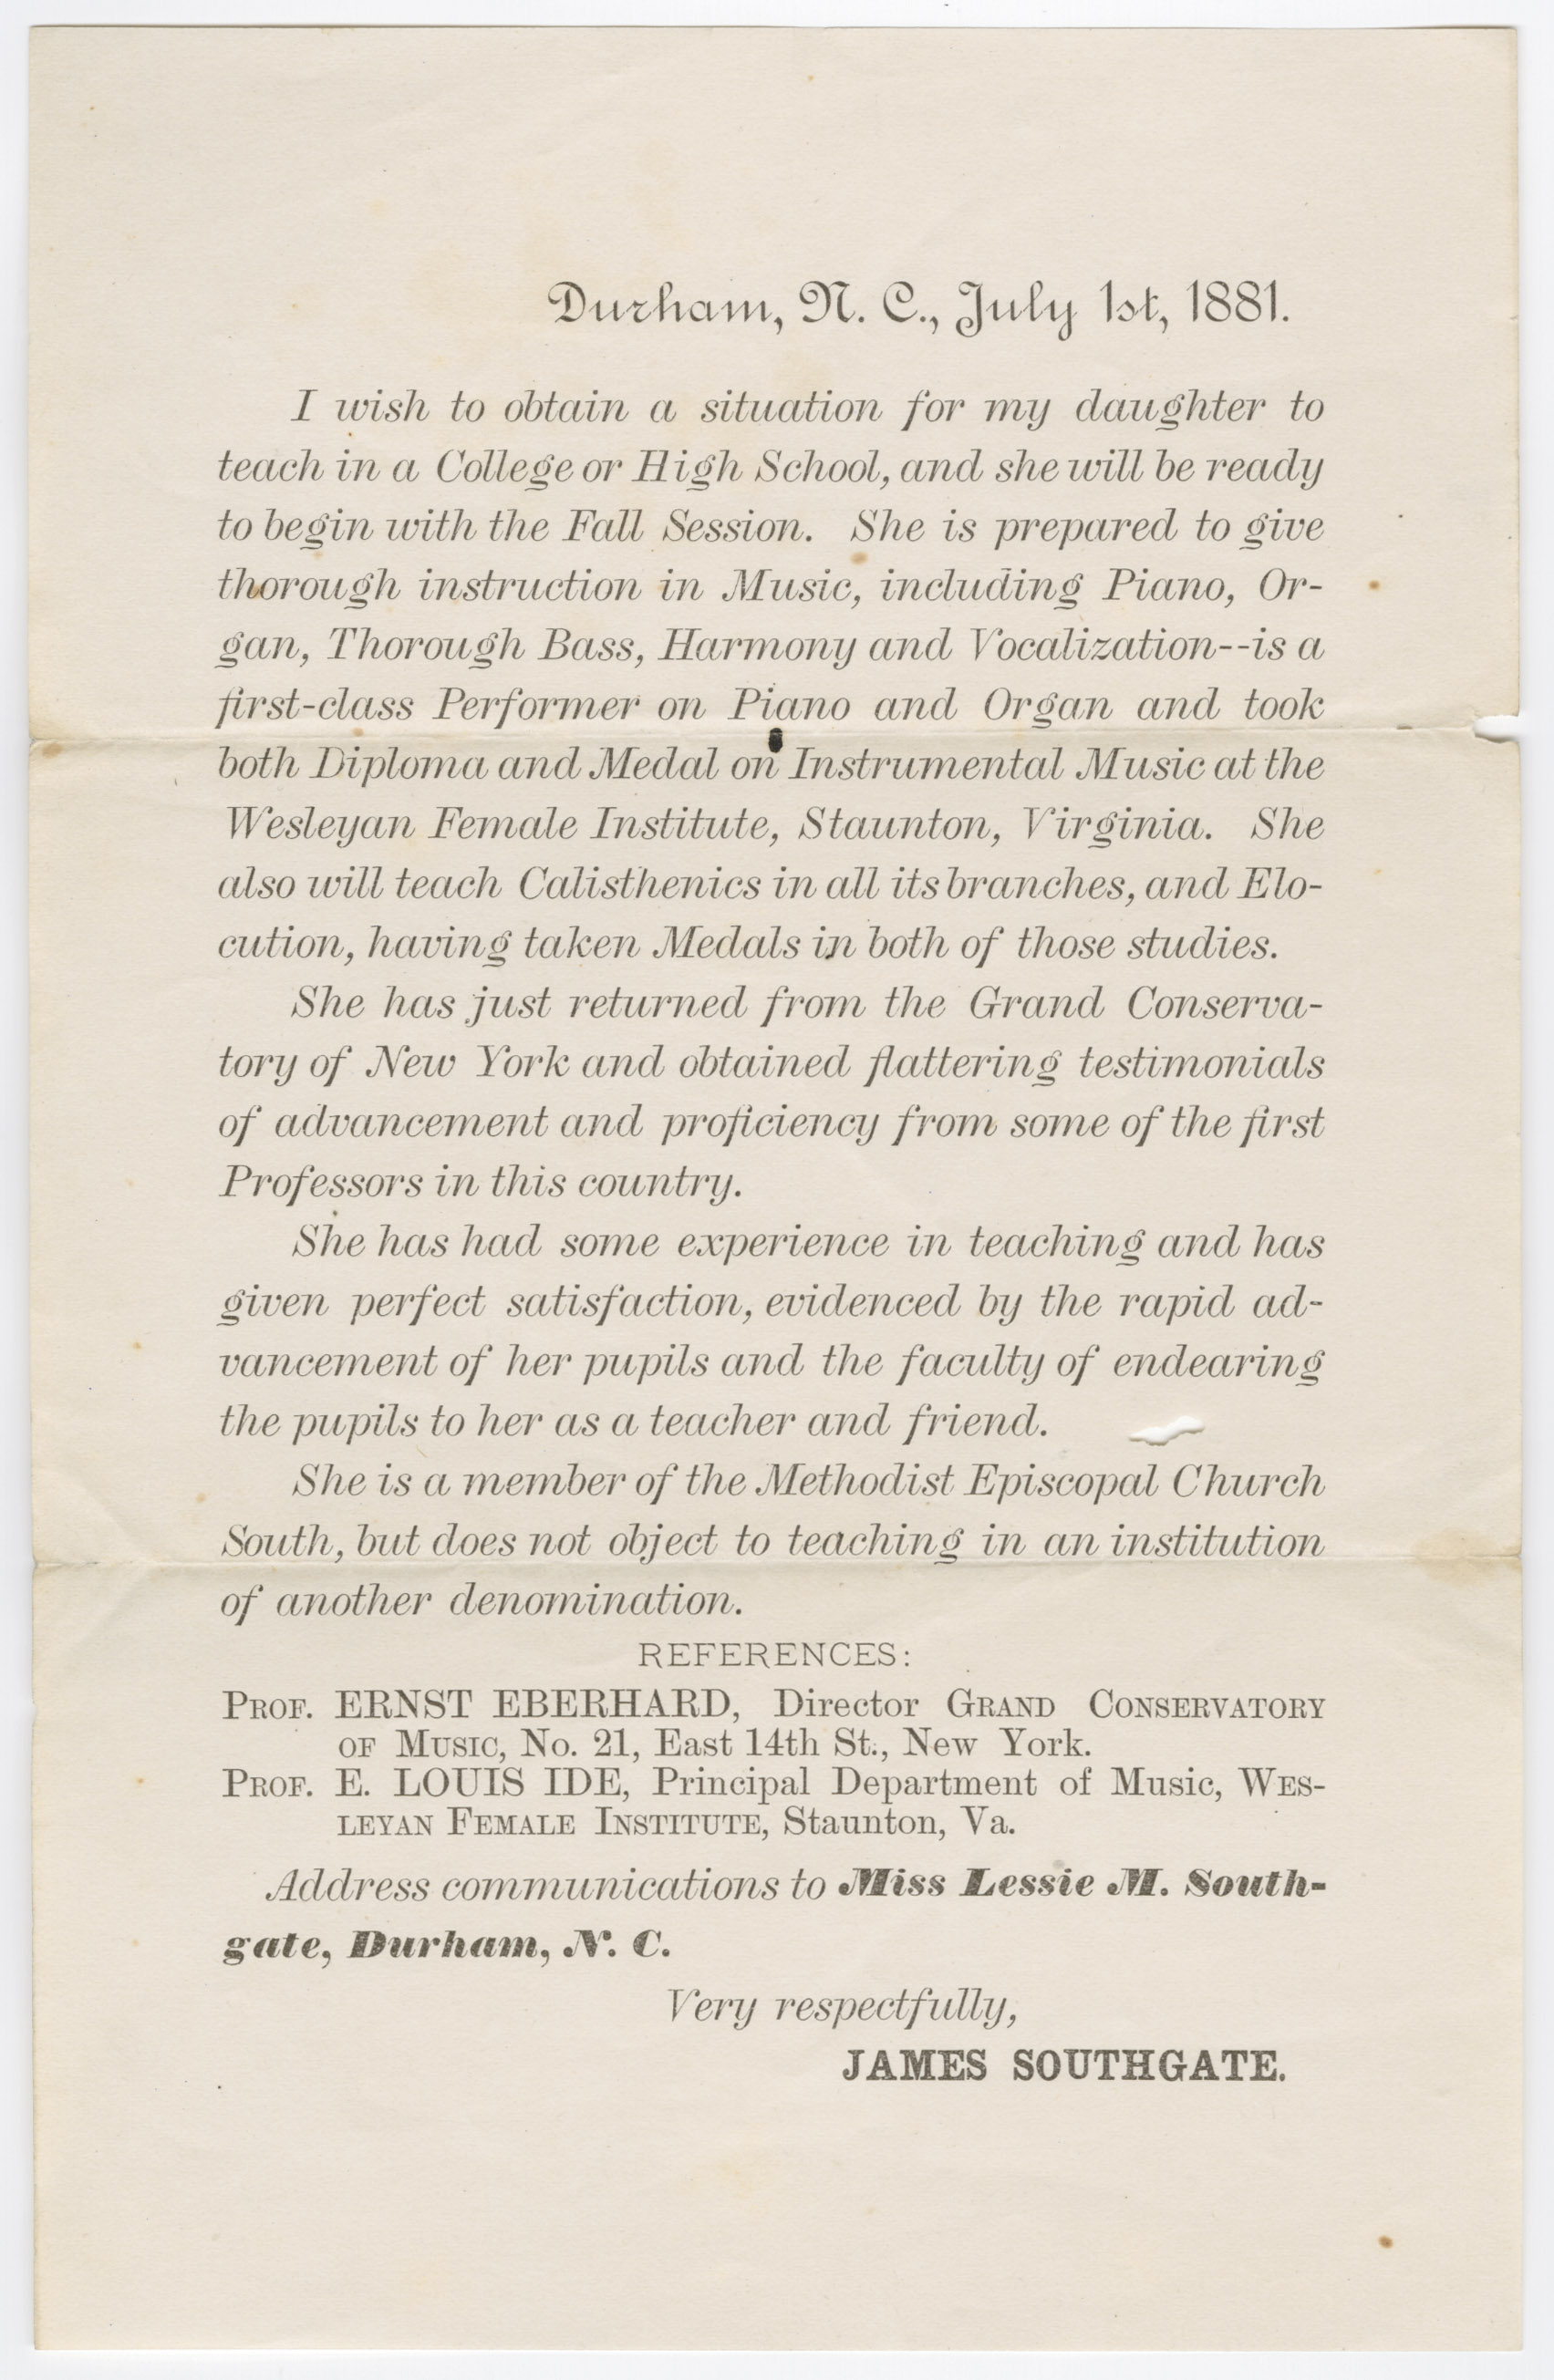 Durham, N. C., July 1st, 1881.
I wish to obtain a situation for my daughter to
teach in a College or High School, and she will be ready
to begin with the Fall Session. She is prepared to give
thorough instruction in Music, including Piano, Or-
gan, Thorough Bass, Harmony and Vocalization--is a
first-class Performer on Piano and Organ and took
both Diploma and Medal on Instrumental Music at the
Wesleyan Female Institute, Staunton, Virginia. She
also will teach Calisthenics in all its branches, and Elo-
cution, having taken Medals in both of those studies.
She has just returned from the Grand Conserva-
tory of New York and obtained flattering testimonials
of advancement and proficiency from some of the first
Professors in this country.
She has had some experience in teaching and has
given perfect satisfaction, evidenced by the rapid ad-
vancement of her pupils and the faculty of endearing
the pupils to her as a teacher and friend.
She is a member of the Methodist Episcopal Church
South, but does not object to teaching in an institution
of another denomination.
REFERENCES:
PROF. ERNST EBERHARD, Director GRAND CONSERVATORY
OF MUSIC, No. 21, East 14th St., New York.
PROF. E. LOUIS IDE, Principal Department of Music, WES-
LEYAN FEMALE INSTITUTE, Staunton, Va.
Address communications to Miss Lessie M. South-
gate, Durham, N. C.
Very respectfully,
JAMES SOUTHGATE.